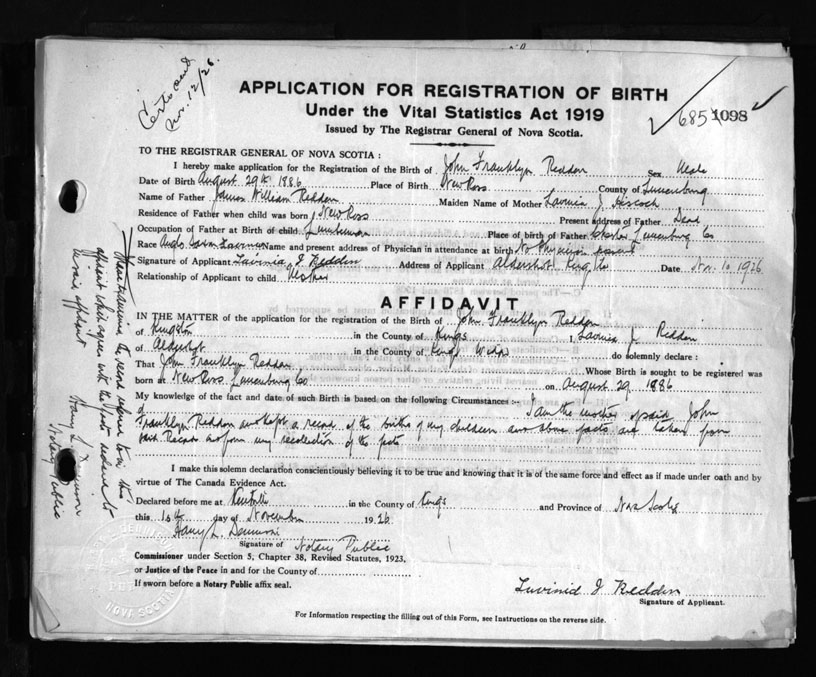 Nov. 12/26.
APPLICATION FOR REGISTRATION OF BIRTH
Under the Vital Statistics Act 1919
Issued by The Registrar General of Nova Scotia.
685 1098
TO THE REGISTRAR GENERAL OF NOVA SCOTIA :
I hereby make application for the Registration of the Birth of John Franklyn Reddon Sex Male
Date of Birth August 29th 1886 Place of Birth New Ross County of Lunenburg
Name of Father James William Reddon Maiden Name of Mother Lavinia J.
Residence of Father when child was born New Ross Present address of Father Dead
Occupation of Father at Birth of child Lumberman Place of birth of Father Chester Lunenburg Co
Race Name and present address of Physician in attendance at birth No Physician
Signature of Applicant Lavinia J Reddin Address of Applicant Aldershot Kings Co Date Nov. 10 1926
Relationship of Applicant to child Mother
AFFIDAVIT
IN THE MATTER of the application for the registration of the Birth of John Franklyn Reddon
of Kingston in the County of Kings I, Lavinia J. Reddon
of Aldershot in the County of Kings do solemnly declare :
That John Franklyn Reddon Whose Birth is sought to be registered was
born at New Ross Lunenburg Co on August 29 1886
My knowledge of the fact and date of such Birth is based on the following Circumstances :- I am the mother of said John
Franklyn Reddon and kept a record of the births of my children and above facts are taken from
said Record and from my recollection of the facts
I make this solemn declaration conscientiously believing it to be true and knowing that it is of the same force and effect as if made under oath and by
virtue of The Canada Evidence Act.
Declared before me at Kentville in the County of Kings and Province of Nova Scotia
this 10th day of November 1926
Harry L. Dennison
Signature of Notary Public
Commissioner under Section 5, Chapter 38, Revised Statutes, 1923,
or Justice of the Peace in and for the County of
If sworn before a Notary Public affix seal.
Luvinid J Reddin
Signature of Applicant.
For Information respecting the filling out of this Form, see Instructions on the reverse side.
I have examined the record referred to in this
affidavit which agrees with the facts
affidavit
Harry L Dennison
Notary Public
NOVA SCOTIA